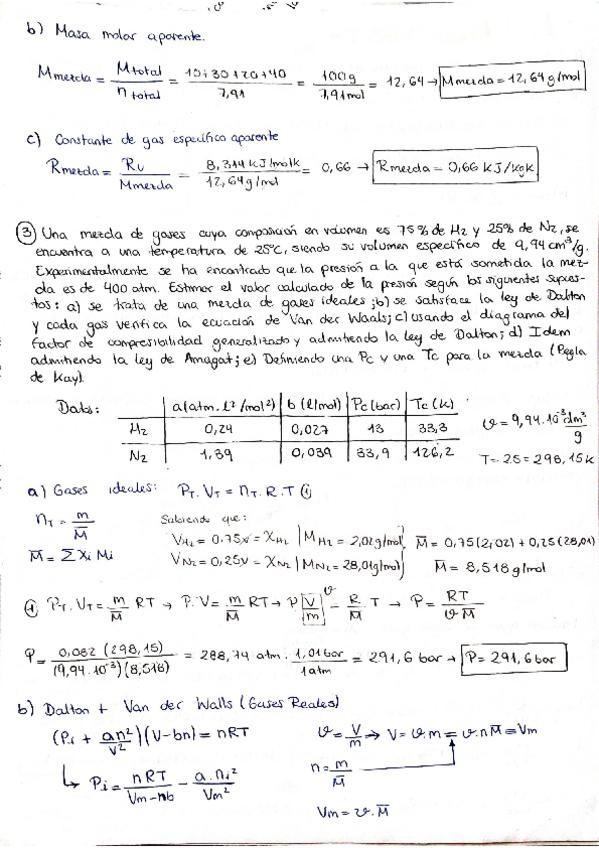 b) Masa molar aparente.
Mmezcla = Mtotal / ntotal = 10+30+20+40 / 7,91 = 100g / 7,91mol = 12,64 → Mmezcla = 12,64 g/mol
c) Constante de gas específica aparente
Rmezcla = Ru / Mmezcla = 8,314 kJ/molk / 12,64 g/mol = 0,66 → Rmezcla = 0,66 kJ/kgk
③ Una mezcla de gases cuya composición en volumen es 75% de H2 y 25% de N2, se
encuentra a una temperatura de 25°C, siendo su volumen específico de 9,94 cm³/g.
Experimentalmente se ha encontrado que la presión a la que está sometida la mez-
cla es de 400 atm. Estimar el valor calculado de la presión según los siguientes supues-
tos: a) se trata de una mezcla de gases ideales; b) se satisface la ley de Dalton
y cada gas verifica la ecuación de Van der Waals; c) usando el diagrama del
factor de compresibilidad generalizado y admitiendo la ley de Dalton; d) Idem
admitiendo la ley de Amagat; e) Definiendo una Pc y una Tc para la mezcla (Regla
de Kay).
Datos: a(atm.l²/mol²) b (l/mol) Pc (bar) Tc (K)
H2 0,24 0,027 13 33,3
N2 1,39 0,039 33,9 126,2
v = 9,94·10⁻³ dm³/g
T = 25 = 298,15k
a) Gases ideales: PT. VT = nT. R. T ①
nT = m / M̄
M̄ = Σ Xi Mi
Sabiendo que:
VH2 = 0.75v = XH2 | MH2 = 2,02g/mol
VN2 = 0,25v = XN2 | MN2 = 28,01g/mol
M̄ = 0,75(2,02) + 0,25(28,01)
M̄ = 8,518 g/mol
① PT. VT = m/M̄ RT → P. V = m/M̄ RT → P V/m v = R/M̄ . T → P = RT / v M̄
P = 0,082 (298,15) / (9,94·10⁻³)(8,518) = 288,74 atm · 1,01 bar / 1 atm = 291,6 bar → P = 291,6 bar
b) Dalton + Van der Walls (Gases Reales)
(Pi + an²/V²)(V-bn) = nRT
↳ Pi = nRT / Vm-nb - a.ni² / Vm²
v = V/m ⇒ V = v.m = v.n M̄ = Vm
n = m / M̄
Vm = v. M̄